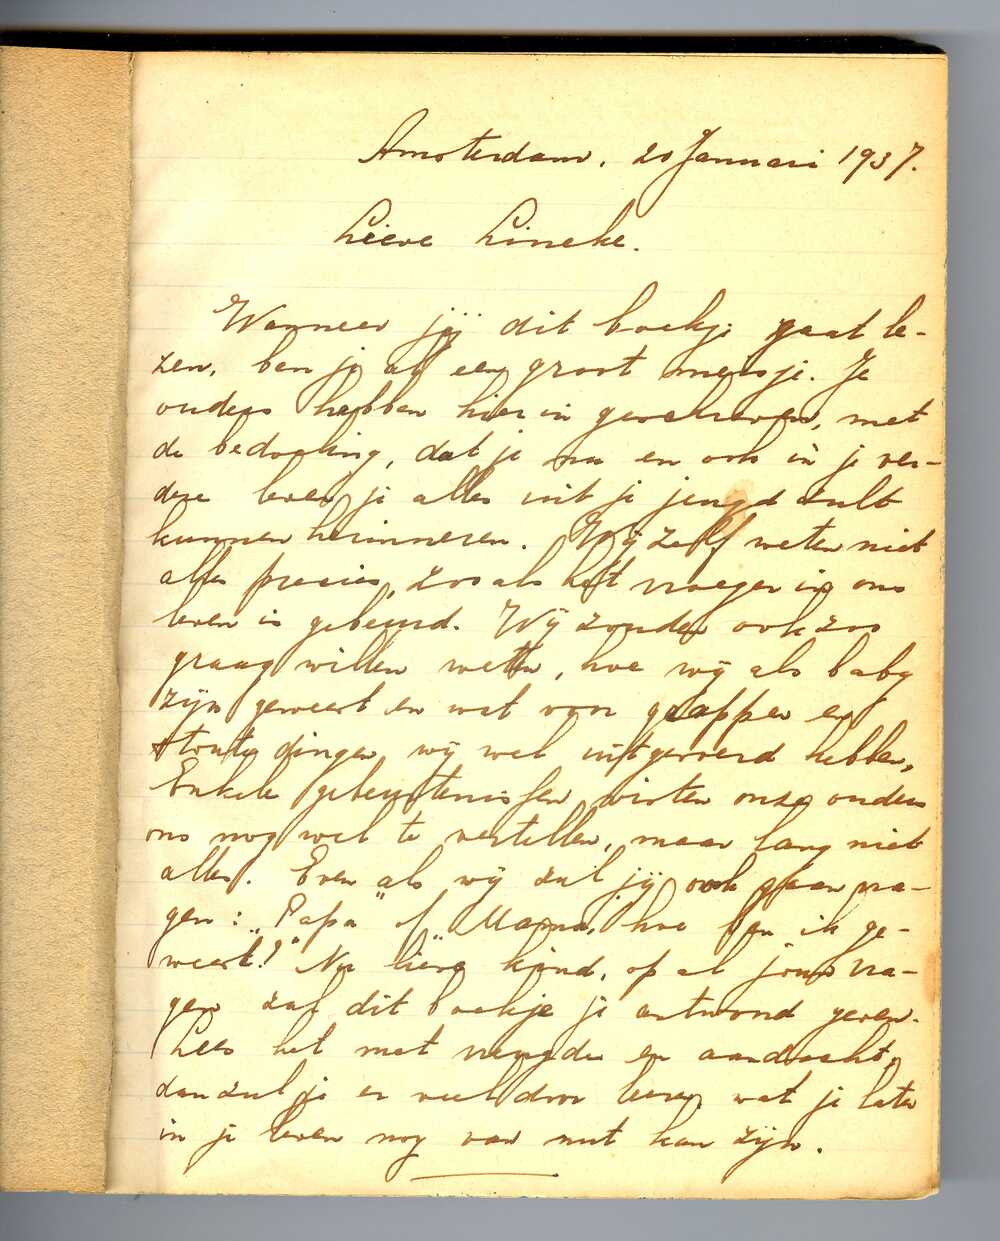 Amsterdam, 20 Januari 1937.
Lieve Lineke.
Wanneer jij dit boekje gaat le-
zen, ben je al een groot meisje. Je
ouders hebben hier in geschreven, met
de bedoeling, dat je nu en ook in je ver-
dere leven je alles uit je jeugd zult
kunnen herinneren. Wij zelf weten niet
alles precies, zooals het vroeger in ons
leven is gebeurd. Wij zouden ook zoo
graag willen weten, hoe wij als baby
zijn geweest en wat voor grappen en
stoute dingen wij wel uitgevoerd hebben,
Enkele gebeurtenissen wisten onze ouders
ons nog wel te vertellen, maar lang niet
alles. Even als wij zul jij ook gaan vra-
gen: „Papa" of „Mama, hoe ben ik ge-
weest?" Nu lieve kind, op al jouw vra-
gen zal dit boekje je antwoord geven.
Lees het met vreugde en aandacht,
dan zul je er veel door leeren wat je later
in je leven nog van nut kan zijn.